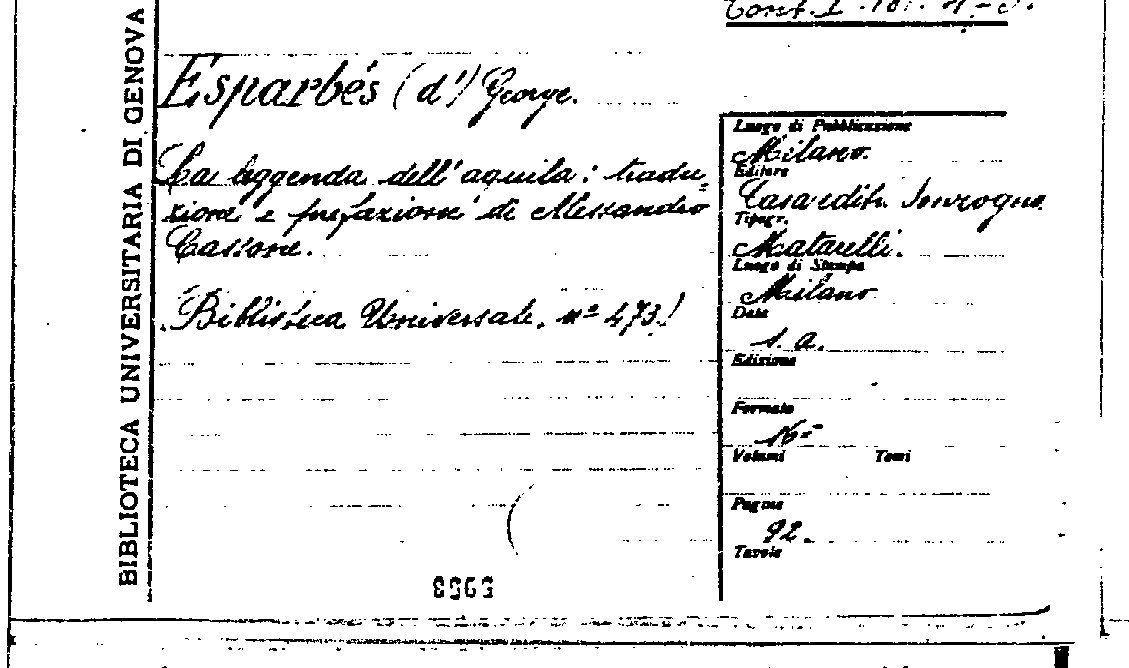 BIBLIOTECA UNIVERSITARIA DI GENOVA
Esparbés (d') George.
La leggenda dell'aquila: tradu=
zione e prefazione di Alessandro
Cassone.
(Biblioteca Universale. nº 473)
Luogo di Pubblicazione
Milano.
Editore
Casa edit. Sonzogno.
Tipogr.
Matarelli.
Luogo di Stampa
Milano
Data
s. a.
Edizione
Formato
16º
Volumi Tomi
Pagine
92.
Tavole